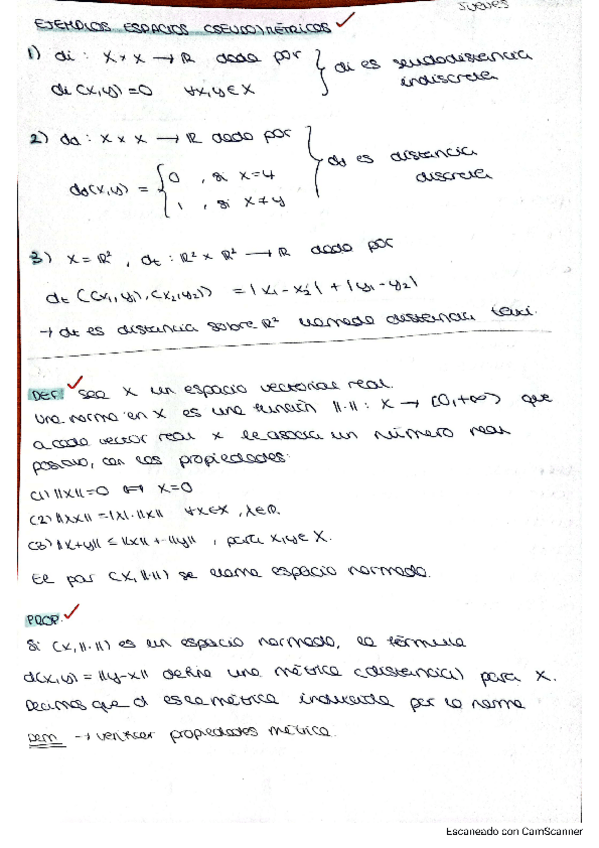 JUEVES
EJEMPLOS ESPACIOS (SEUDO)MÉTRICOS
1) di : X × X → ℝ dada por
di(x,y) = 0 ∀x,y ∈ X
di es seudodistancia
indiscreta
2) dd : X × X → ℝ dada por
dd(x,y) = { 0 , si x=y
1 , si x≠y
dd es distancia
discreta
3) X = ℝ² , dt : ℝ² × ℝ² → ℝ dada por
dt ((x₁,y₁),(x₂,y₂)) = |x₁-x₂| + |y₁-y₂|
→ dt es distancia sobre ℝ² llamada distancia taxi.
DEF. Sea X un espacio vectorial real.
Una norma en X es una función ||·|| : X → [0,+∞) que
a cada vector real x le asocia un número real
positivo, con las propiedades:
(1) ||x||=0 ⟷ x=0
(2) ||λx|| = |λ|·||x|| ∀x∈X, λ∈ℝ.
(3) ||x+y|| ≤ ||x|| + ||y|| , para x,y ∈ X.
El par (X,||·||) se llama espacio normado.
PROP.
Si (X,||·||) es un espacio normado, la fórmula
d(x,y) = ||y-x|| define una métrica (distancia) para X.
Decimos que d es la métrica inducida por la norma
Dem → verificar propiedades métrica.
Escaneado con CamScanner